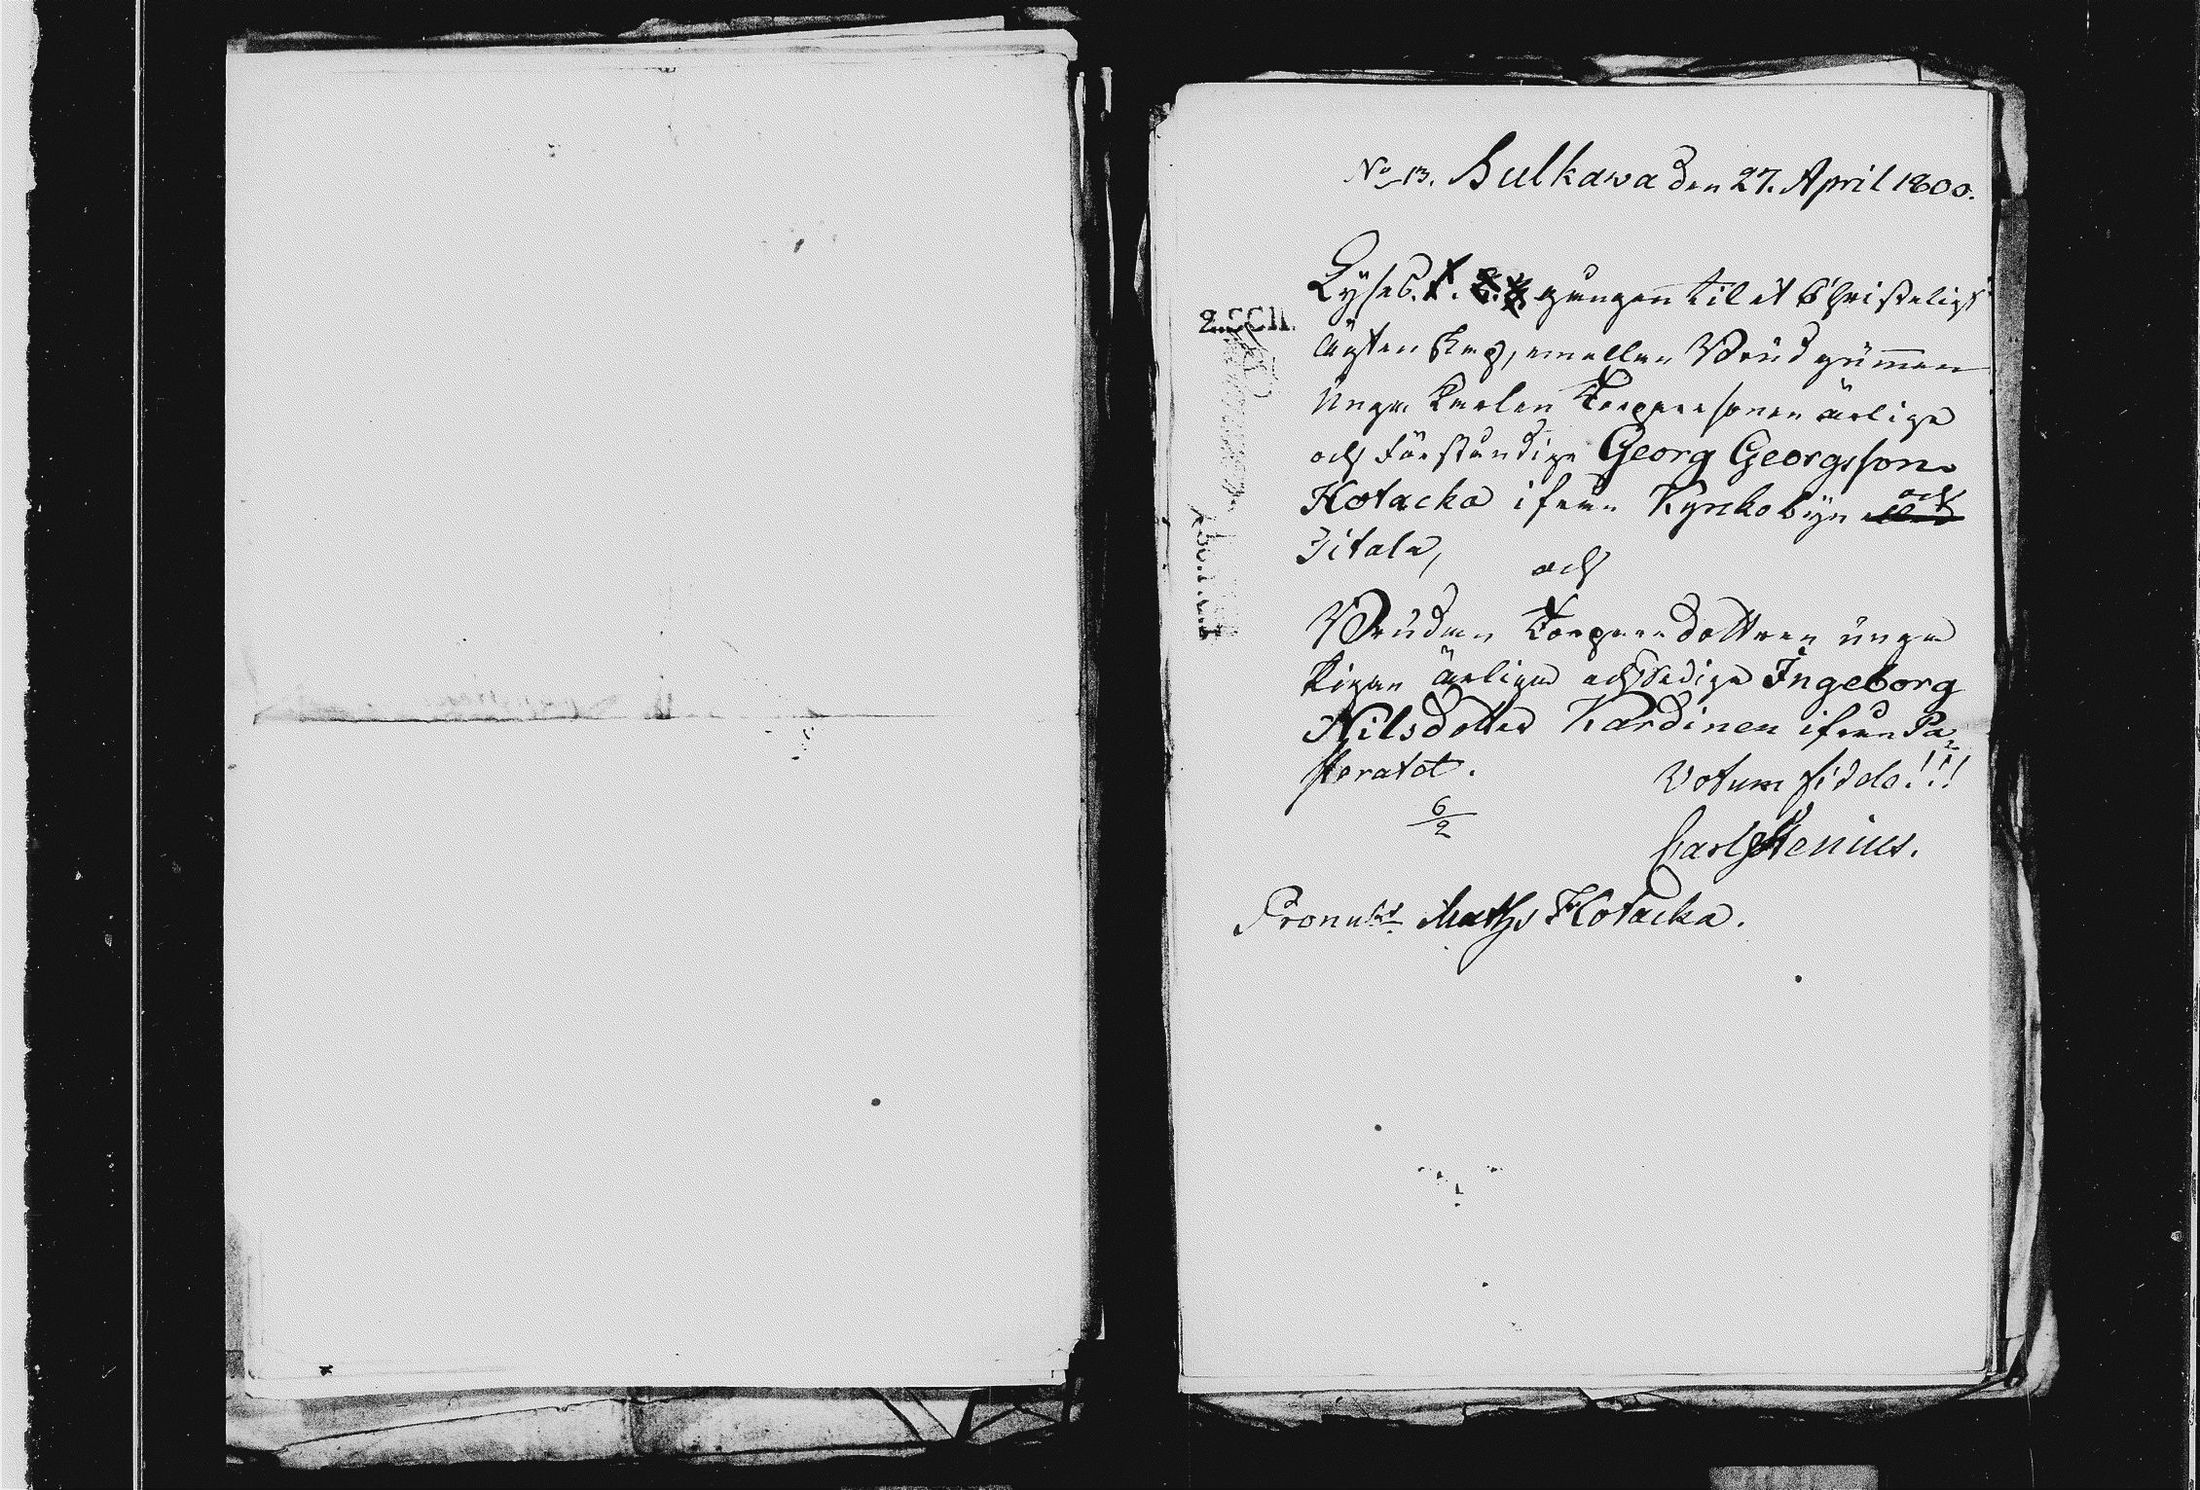 No 13. Sulkawa den 27. April 1800.
Lyses 1. 2. 3. gången til et Christeligt
ägtenskap, emellan Brudgummen
unga Karlen Torparesonen ärlige
och Förståndige Georg Georgsson
Kotacka ifrån Kyrkobyn och
Iitala,
och
Bruden Torparedottren unga
Pigan ärliga och sediga Ingeborg
Nilsdotter Kardinen ifrån Pa
steratet.
Votum fidele!!!
6/2
Carl Stenius.
Pronubs Maths Kotacka.
2. SCH.